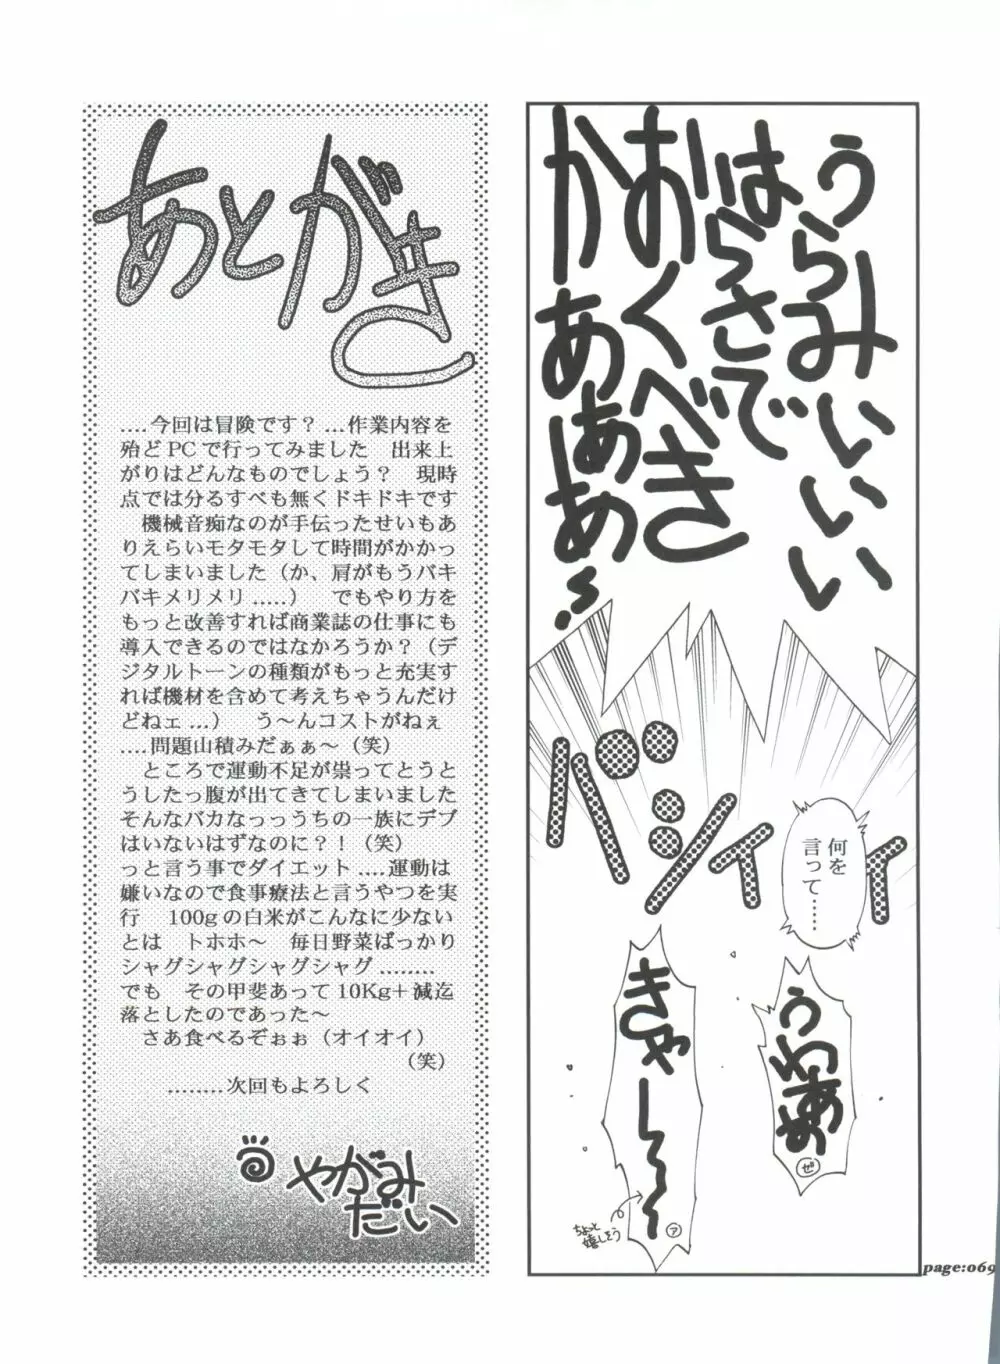 うらみいいい
はらさで
おくべき
かあぁあ!!
バシィィィ
何を
言って……
うわあぁ
ゼ
きゃー〜〜
ア
ちょっと
嬉しそう
page:069
あとがき
.....今回は冒険です？ ...作業内容を
殆どPCで行ってみました　出来上
がりはどんなものでしょう？　現時
点では分るすべも無くドキドキです
　機械音痴なのが手伝ったせいもあ
りえらいモタモタして時間がかかっ
てしまいました（か、肩がもうバキ
バキメリメリ.....）　でもやり方を
もっと改善すれば商業誌の仕事にも
導入できるのではなかろうか？（デ
ジタルトーンの種類がもっと充実す
れば機材を含めて考えちゃうんだけ
どねェ...）　う〜んコストがねぇ
.....問題山積みだぁぁ〜（笑）
　ところで運動不足が祟ってとうと
うしたっ腹が出てきてしまいました
そんなバカなっっうちの一族にデブ
はいないはずなのに？！（笑）
っと言う事でダイエット.....運動は
嫌いなので食事療法と言うやつを実
行　100gの白米がこんなに少ない
とは　トホホ〜　毎日野菜ばっかり
シャグシャグシャグシャグ........
でも　その甲斐あって10Kg＋減迄
落としたのであった〜
　さあ食べるぞぉぉ（オイオイ）
（笑）
........次回もよろしく
やがみ
だい